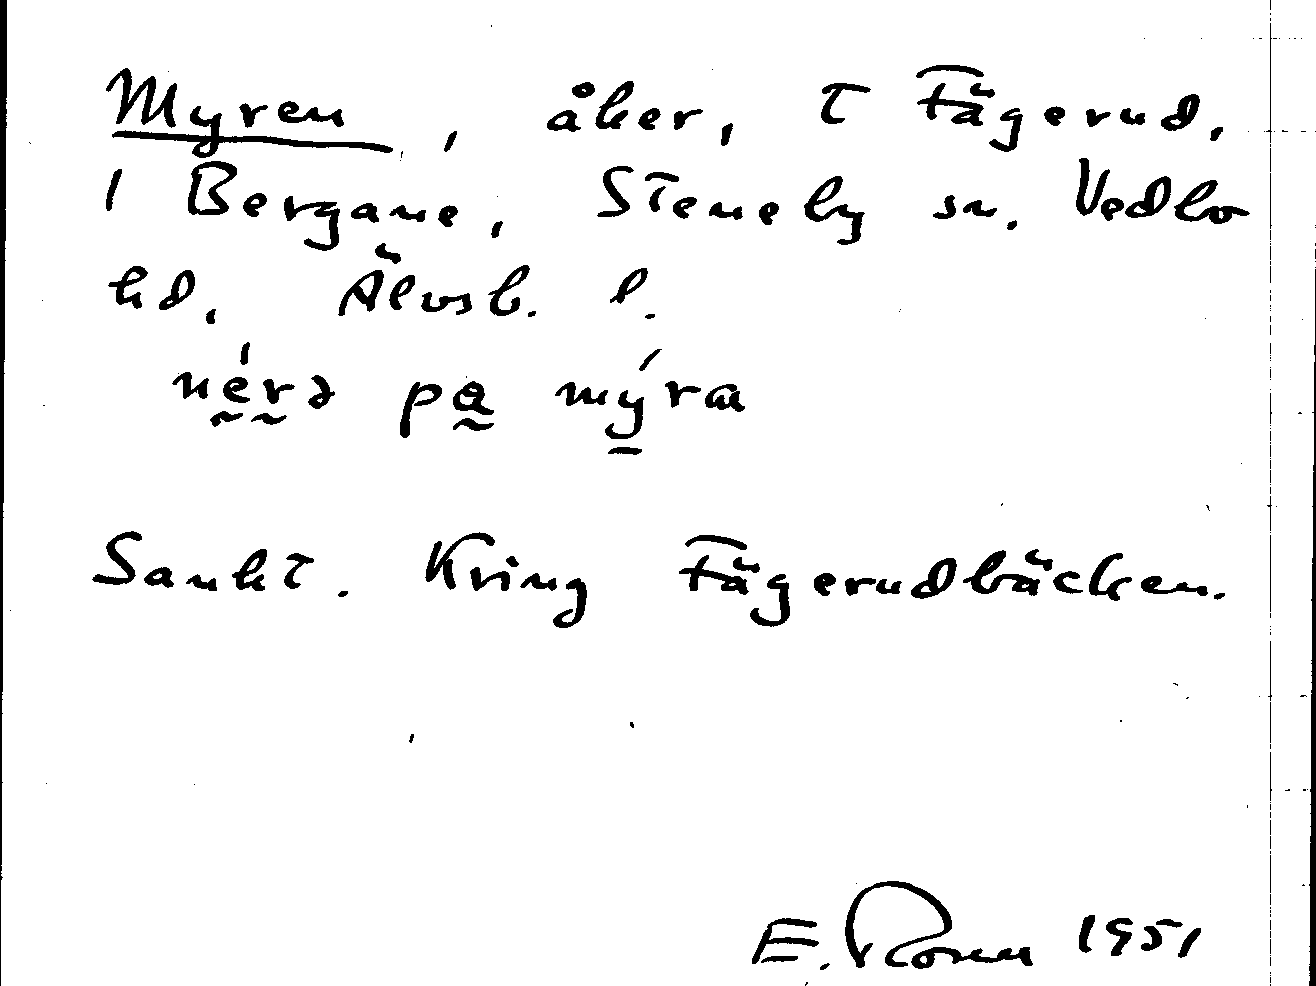 Myren, åker, t Fägerud,
1 Bergane, Steneby sn. Vedbo
hd, Älvsb. l.
nérə pa mýra
Sankt. Kring Fägerudbäcken.
E. Rosen 1951